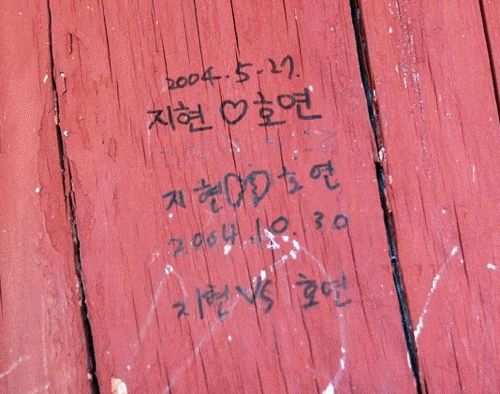 2004.5.27.
지현 ♡ 호연
지현 ♡♡ 호연
2004.10.30
지현 VS 호연